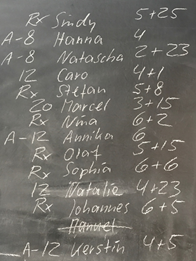 Rx Sindy 5+25
A-8 Hanna 4
A-8 Natascha 2+23
12 Caro 4+1
Rx Stefan 5+8
20 Marcel 3+15
Rx Nina 6+2
A-12 Annika 6
Rx Olaf 5+15
Rx Sophia 6+6
12 Natalie 4+23
Rx Johannes 6+5
Manuel
A-12 Kerstin 4+5